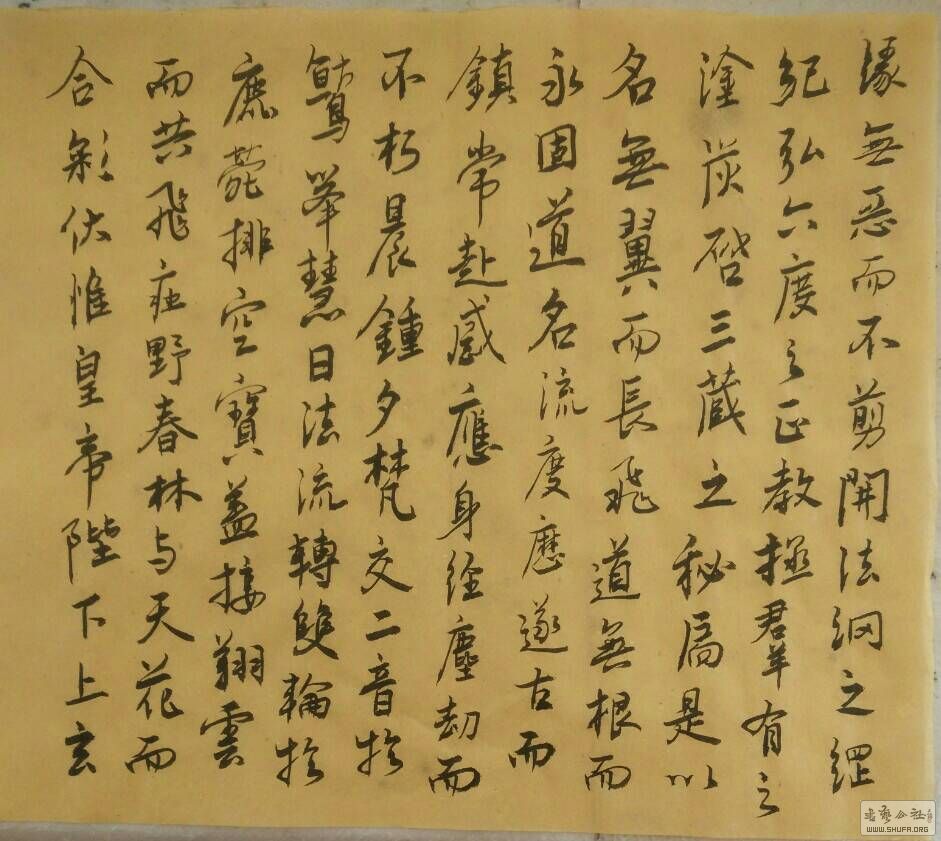 緣無惡而不剪開法網之綱
紀弘六度之正教拯群有之
塗炭啓三藏之秘扃是以
名無翼而長飛道無根而
永固道名流慶歷遂古而
鎮常赴感應身經塵劫而
不朽晨鍾夕梵交二音於
鷲峯慧日法流轉雙輪於
鹿菀排空寶蓋接翔雲
而共飛莊野春林与天花而
合彩伏惟皇帝陛下上玄
WWW.SHUFA.ORG